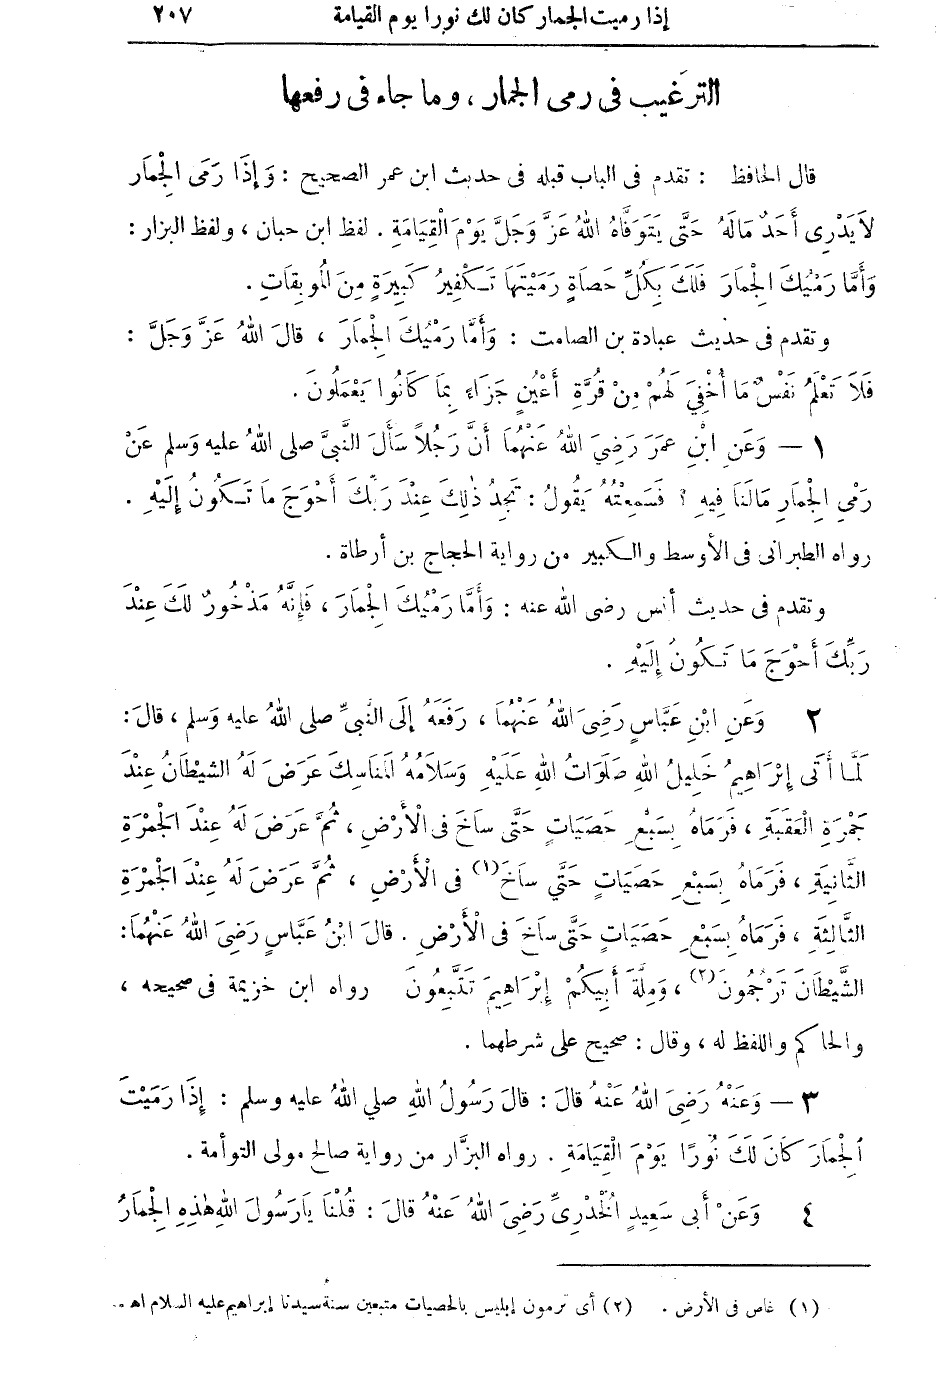 إذا رميت الجمار كان لك نورا يوم القيامة ٢٠٧
الترغيب فى رمى الجمار ، وما جاء فى رفعها
قال الحافظ : تقدم فى الباب قبله فى حديث ابن عمر الصحيح : وَإِذَا رَمَى الْجِمَارَ
لاَيَدْرِى أَحَدٌ مَالَهُ حَتَّى يَتَوَفَّاهُ اللهُ عَزَّ وَجَلَّ يَوْمَ الْقِيَامَةِ . لفظ ابن حبان ، ولفظ البزار :
وَأَمَّا رَمْيُكَ الْجِمَارَ فَلَكَ بِكُلِّ حَصَاةٍ رَمَيْتَهَا تَكْفِيرُ كَبِيرَةٍ مِنَ الْمُوبِقَاتِ .
وتقدم فى حديث عبادة بن الصامت : وَأَمَّا رَمْيُكَ الْجِمَارَ ، قَالَ اللهُ عَزَّ وَجَلَّ :
فَلاَ تَعْلَمُ نَفْسٌ مَا أُخْفِىَ لَهُمْ مِنْ قُرَّةِ أَعْيُنٍ جَزَاءً بِمَا كَانُوا يَعْمَلُونَ .
١ — وَعَنِ ابْنِ عمَرَ رَضِيَ اللهُ عَنْهُمَا أَنَّ رَجُلاً سَأَلَ النَّبِىَّ صلى اللهُ عليه وَسلم عَنْ
رَمْىِ الْجِمَارِ مَالَنَا فِيهِ ؟ فَسَمِعْتُهُ يَقُولُ : تَجِدُ ذٰلِكَ عِنْدَ رَبِّكَ أَحْوَجَ مَا تَكُونُ إِلَيْهِ .
رواه الطبرانى فى الأوسط والكبير من رواية الحجاج بن أرطاة .
وتقدم فى حديث أنس رضى الله عنه : وَأَمَّا رَمْيُكَ الْجِمَارَ ، فَإِنَّهُ مَذْخُورٌ لَكَ عِنْدَ
رَبِّكَ أَحْوَجَ مَا تَكُونُ إِلَيْهِ .
٢ وَعَنِ ابْنِ عَبَّاسٍ رَضِىَ اللهُ عَنْهُمَا ، رَفَعَهُ إِلَى النَّبِىِّ صلى اللهُ عليه وَسلم ، قَالَ :
لَمَّا أَتَى إِبْرَاهِيمُ خَلِيلُ اللهِ صَلَوَاتُ اللهِ عَلَيْهِ وَسَلاَمُهُ الْمَنَاسِكَ عَرَضَ لَهُ الشَّيْطَانُ عِنْدَ
جَمْرَةِ الْعَقَبَةِ ، فَرَمَاهُ بِسَبْعِ حَصَيَاتٍ حَتَّى سَاخَ فى الْأَرْضِ ، ثُمَّ عَرَضَ لَهُ عِنْدَ الْجَمْرَةِ
الثَّانِيَةِ ، فَرَمَاهُ بِسَبْعِ حَصَيَاتٍ حَتَّي سَاخَ (١) فى الْأَرْضِ ، ثُمَّ عَرَضَ لَهُ عِنْدَ الْجَمْرَةِ
الثَّالِثَةِ ، فَرَمَاهُ بِسَبْعِ حَصَيَاتٍ حَتَّى سَاخَ فى الْأَرْضِ . قالَ ابْنُ عَبَّاسٍ رَضِىَ اللهُ عَنْهُمَا :
الشَّيْطَانَ تَرْجُمُونَ (٢) ، وَمِلَّةَ أَبِيكُمْ إِبْرَاهِيمَ تَتَّبِعُونَ رواه ابن خزيمة فى صحيحه ،
والحاكم واللفظ له ، وقال : صحيح على شرطهما .
٣ — وَعَنْهُ رَضِىَ اللهُ عَنْهُ قالَ : قالَ رَسُولُ اللهِ صلي اللهُ عليه وسلم : إِذَا رَمَيْتَ
الْجِمَارَ كَانَ لَكَ نُورًا يَوْمَ الْقِيَامَةِ . رواه البزَّار من رواية صالح مولى التوأمة .
٤ وَعَنْ أَبِى سَعِيدٍ الْخُدْرِىِّ رَضِىَ اللهُ عَنْهُ قالَ : قُلْنَا يَارَسُولَ اللهِ هٰذِهِ الْجِمَارُ
(١) غاص فى الأرض . (٢) أى ترمون إبليس بالحصيات متبعين سنة سيدنا إبراهيم عليه السلام اهـ .